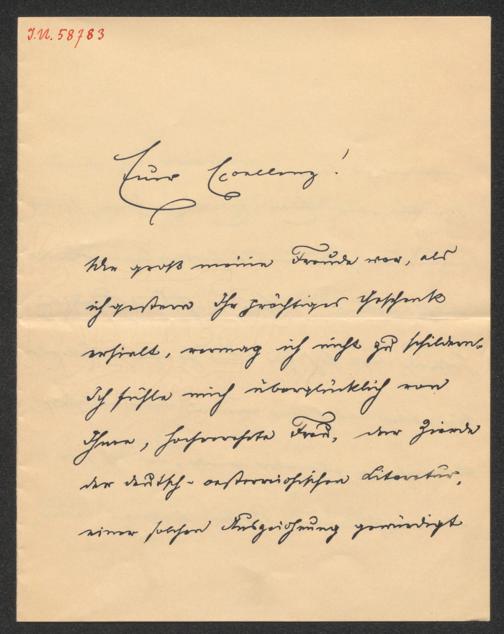 I.N. 58783
Eure Excellenz!
Wie groß meine Freude war, als
ich gestern Ihr prächtiges Geschenk
erhielt, vermag ich nicht zu schildern.
Ich fühle mich überglücklich von
Ihnen, hochverehrte Frau, der Zierde
der deutsch-oesterreichischen Literatur,
einer solchen Auszeichnung gewürdigt